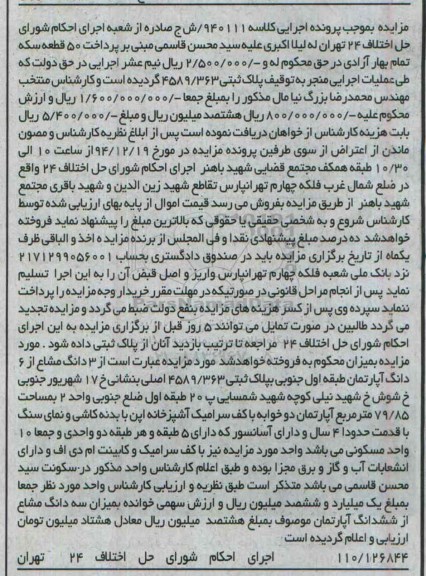 مزایده بموجب پرونده اجرایی کلاسه ۹۴۰۱۱۱/ش ج صادره از شعبه اجرای احکام شورای
حل اختلاف ۲۴ تهران له لیلا اکبری علیه سید محسن قاسمی مبنی بر پرداخت ۵۰ قطعه سکه
تمام بهار آزادی در حق محکوم له و -/۲/۵۰۰/۰۰۰ ریال نیم عشر اجرایی در حق دولت که
طی عملیات اجرایی منجر به توقیف پلاک ثبتی ۴۵۸۹/۳۶۳ گردیده است و کارشناس منتخب
مهندس محمدرضا بزرگ نیا مال مذکور را بمبلغ جمعا -/۱/۶۰۰/۰۰۰/۰۰۰ ریال و ارزش
محکوم علیه -/۸۰۰/۰۰۰/۰۰۰ ریال هشتصد میلیون ریال و مبلغ -/۵/۴۰۰/۰۰۰ ریال
بابت هزینه کارشناس از خواهان دریافت نموده است پس از ابلاغ نظریه کارشناس و مصون
ماندن از اعتراض از سوی طرفین پرونده مزایده در مورخ ۹۴/۱۲/۱۹ از ساعت ۱۰ الی
۱۰/۳۰ طبقه همکف مجتمع قضایی شهید باهنر اجرای احکام شورای حل اختلاف ۲۴ واقع
در ضلع شمال غرب فلکه چهارم تهرانپارس تقاطع شهید زین الدین و شهید باقری مجتمع
شهید باهنر از طریق مزایده بفروش می رسد قیمت اموال از پایه بهای ارزیابی شده توسط
کارشناس شروع و به شخص حقیقی یا حقوقی که بالاترین مبلغ را پیشنهاد نماید فروخته
خواهدشد ده درصد مبلغ پیشنهادی نقدا و فی المجلس از برنده مزایده اخذ و الباقی ظرف
یکماه از تاریخ برگزاری مزایده باید در صندوق دادگستری بحساب ۲۱۷۱۲۹۹۰۵۶۰۰۱
نزد بانک ملی شعبه فلکه چهارم تهرانپارس واریز و اصل قبض آن را به این اجرا تسلیم
نماید پس از انجام مراحل قانونی در صورتیکه در مهلت مقرر خریدار وجه مزایده را پرداخت
ننماد سپرده وی پس از کسر هزینه های مزایده بنفع دولت ضبط می گردد و مزایده تجدید
می گردد طالبین در صورت تمایل می توانند ۵ روز قبل از برگزاری مزایده به این اجرای
احکام شورای حل اختلاف ۲۴ مراجعه تا ترتیب بازدید آنان از پلاک ثبتی داده شود . مورد
مزایده بمیزان محکوم به فروخته خواهدشد مورد مزایده عبارت است از ۳ دانگ مشاع از ۶
دانگ آپارتمان طبقه اول جنوبی بپلاک ثبتی ۴۵۸۹/۳۶۳ اصلی بنشانی خ ۱۷ شهریور جنوبی
خ شوش خ شهید نیلی کوچه شهید شمسایی پ ۲۰ طبقه اول ضلع جنوبی واحد ۲ بمساحت
۷۹/۸۵ مترمربع آپارتمان دوخوابه با کف سرامیک آشپزخانه اپن با بدنه کاشی و نمای سنگ
با قدمت حدودا ۴ سال و دارای آسانسور که دارای ۵ طبقه و هر طبقه دو واحدی و جمعا ۱۰
واحد مسکونی می باشد واحد مورد مزایده نیز با کف سرامیک و کابینت ام دی اف و دارای
انشعابات آب و گاز و برق مجزا بوده و طبق اعلام کارشناس واحد مذکور در سکونت سید
محسن قاسمی می باشد متذکر است طبق نظریه و ارزیابی کارشناس واحد مورد نظر جمعا
بمبلغ یک میلیارد و ششصد میلیون ریال و ارزش سهمی خوانده بمیزان سه دانگ مشاع
از ششدانگ آپارتمان موصوف بمبلغ هشتصد میلیون ریال معادل هشتاد میلیون تومان
ارزیابی و اعلام گردیده است
۱۱۰/۱۲۶۸۴۴ اجرای احکام شورای حل اختلاف ۲۴ تهران